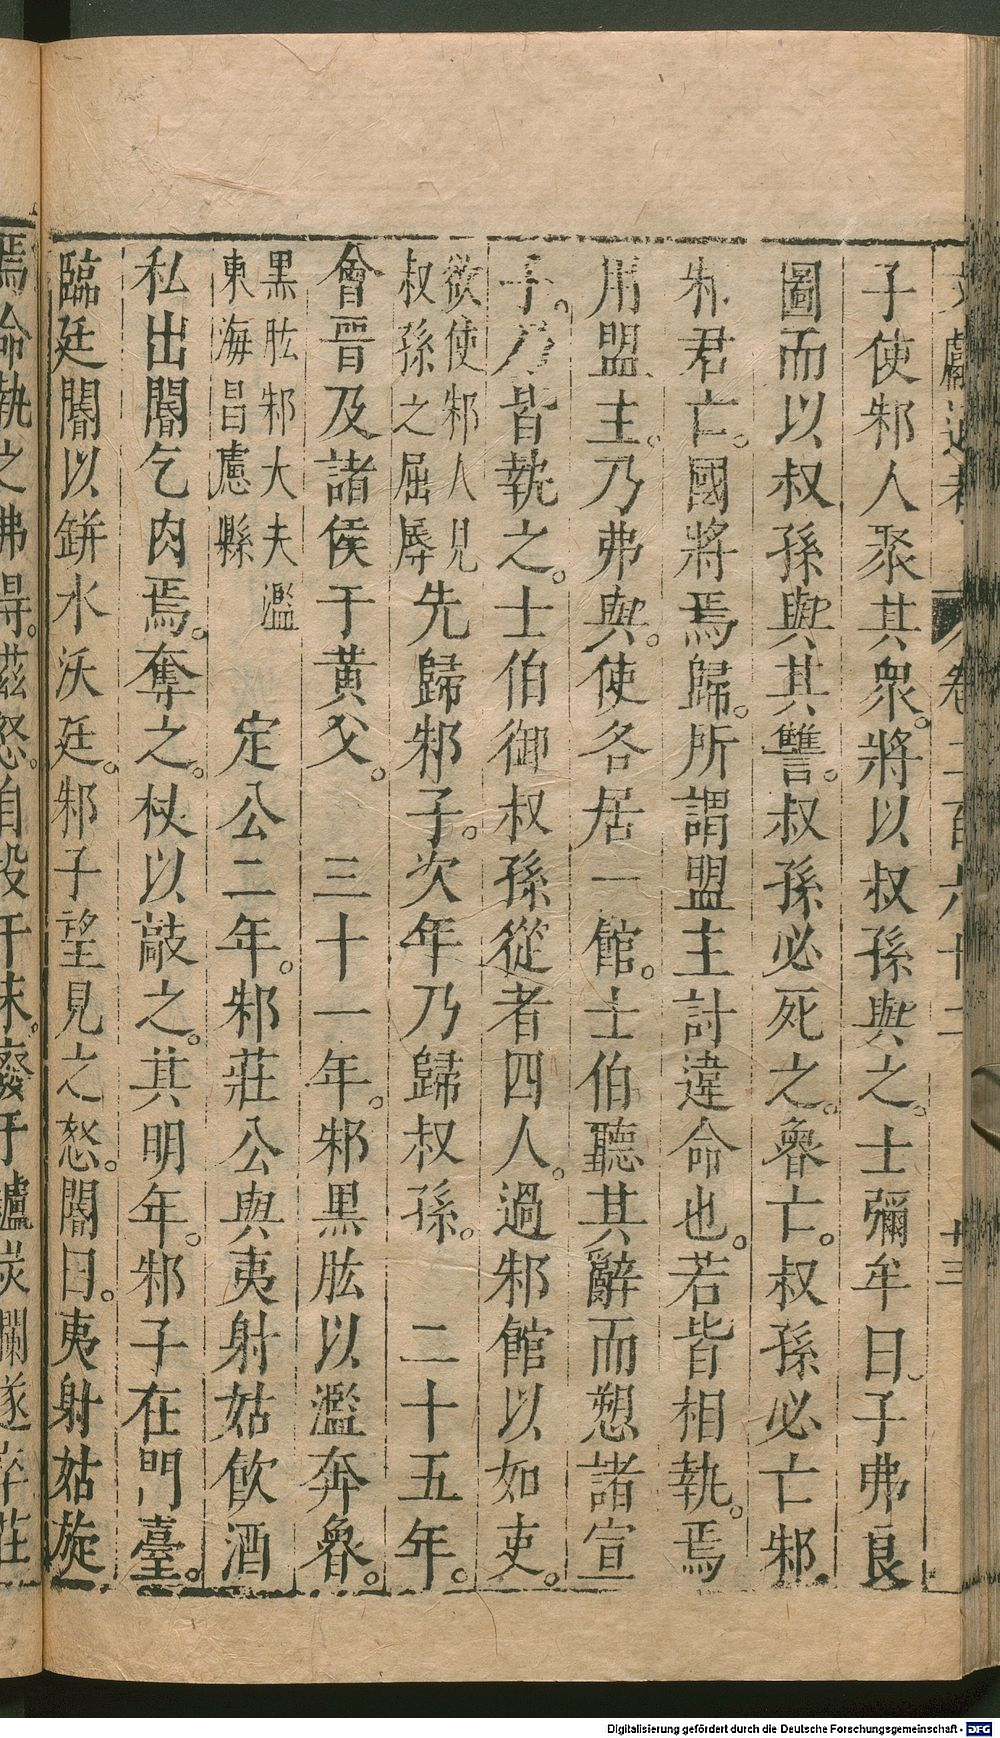 子使邾人聚其衆。將以叔孫與之。士彌牟曰。子弗良
圖而以叔孫與其讐。叔孫必死之。魯亡。叔孫必亡邾。
邾君亡。國將焉歸。所謂盟主討違命也。若皆相執。焉
用盟主。乃弗與。使各居一館。士伯聽其辭而愬諸宣
子。乃皆執之。士伯御叔孫從者四人。過邾館以如吏。
欲使邾人見
叔孫之屈辱
先歸邾子。次年乃歸叔孫。　二十五年。
會晉及諸侯于黃父。　三十一年。邾黑肱以濫奔魯。
黑肱邾大夫濫
東海昌慮縣
定公二年。邾莊公與夷射姑飲酒
私出閽乞肉焉。奪之。杖以敲之。其明年。邾子在門臺。
臨廷閽以缾水沃廷。邾子望見之怒。閽曰。夷射姑旋
焉命執之弗得。滋怒。自投于床。廢于鑪炭爛遂卒莊
卷二百六十二
十三
Digitalisierung gefördert durch die Deutsche Forschungsgemeinschaft - DFG